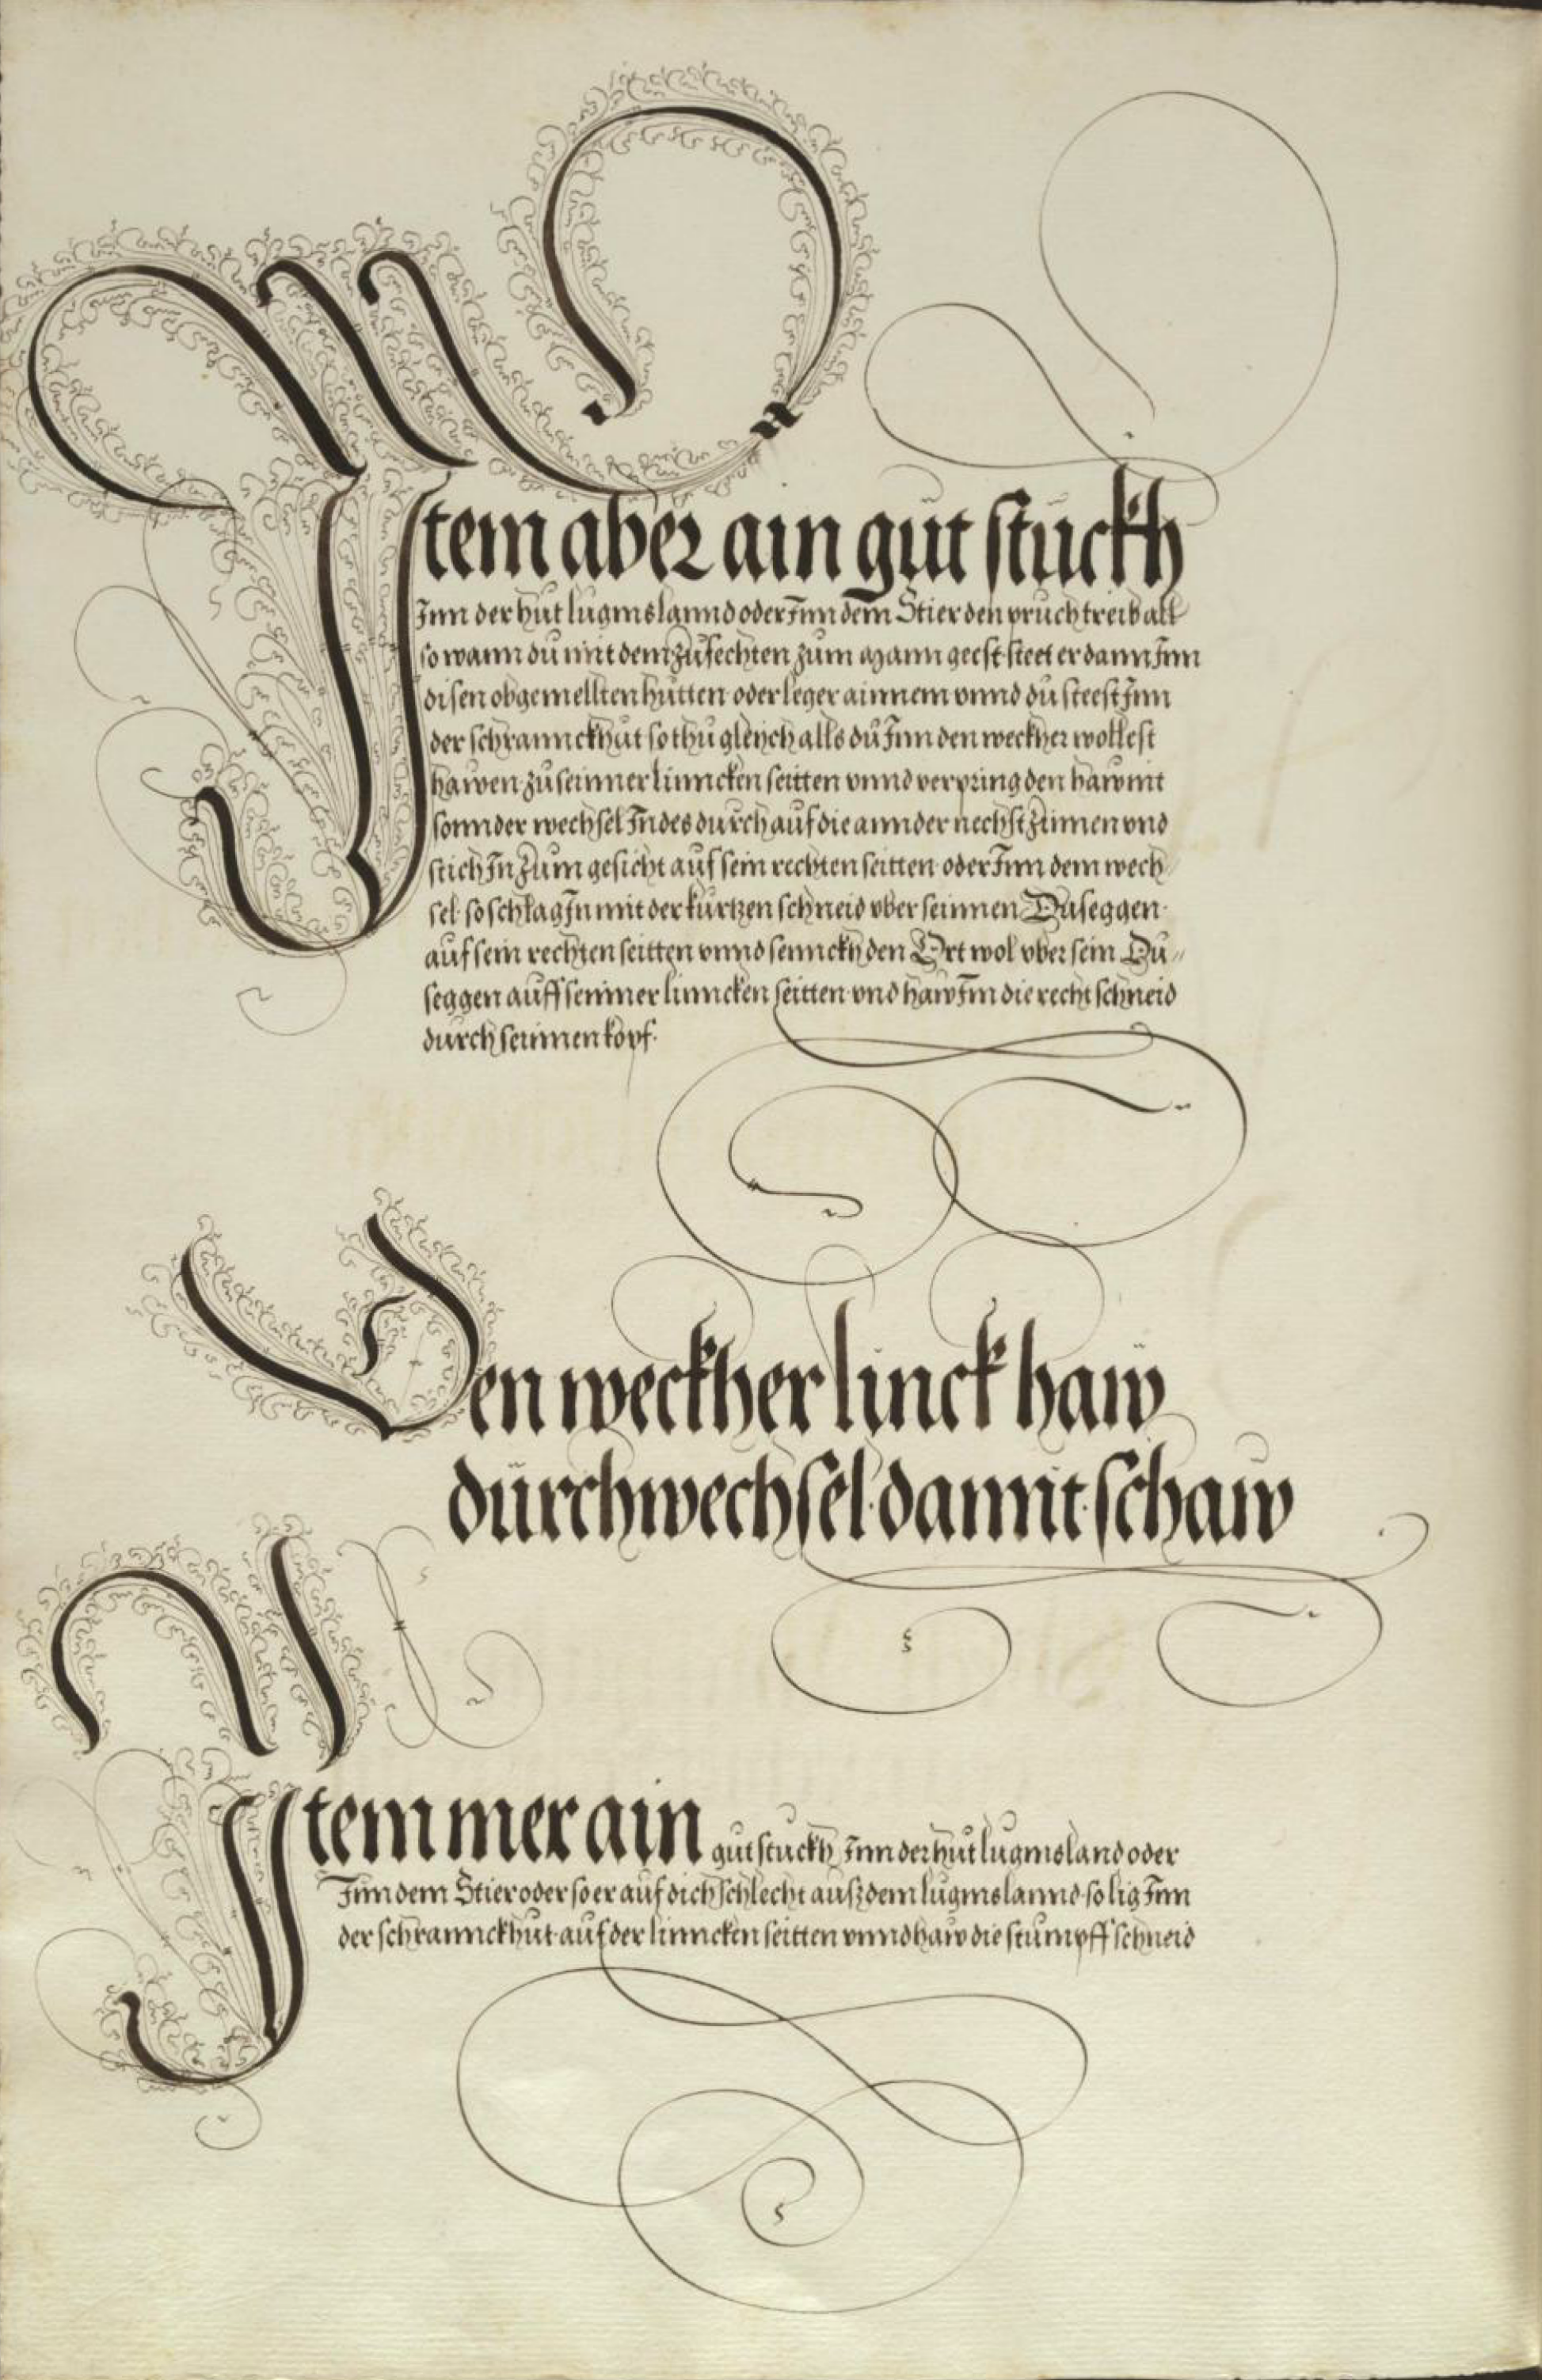 Item aber ain gůt stuckh
Inn der hůt lůgmslannd oder Inn dem Stier den pruch treib all
so wann du mit dem zůfechten zum Mann geest steet er dann Inn
disen obgemellten hůtten oder leger ainnem vnnd dů steest Inn
der schrannckhůt so thů gleych alls dů Inn den weckher wollest
hawen zů seinner linncken seitten vnnd verpring den haw nit
sonnder wechsel Indes durch auf die annder nechst Zinnen vnd
stich In zum gesicht auf sein rechten seitten oder Inn dem wech
sel so schlag In mit der kurtzen schneid vber seinnen Duseggen
auf sein rechten seitten vnnd sennckh den Ort wol vber sein Du„
seggen auff seinner linncken seitten vnd haw Im die recht schneid
durch seinnen kopf.
Den weckher linck haw
durchwechsel damit schaw
Item mer ain gůt stuckh Inn der hůt lugmsland oder
Inn dem Stier oder so er auf dich schlecht ausz dem lugmslannd so lig Inn
der schrannckhut auf der linncken seitten vnnd haw die stumpff schneid